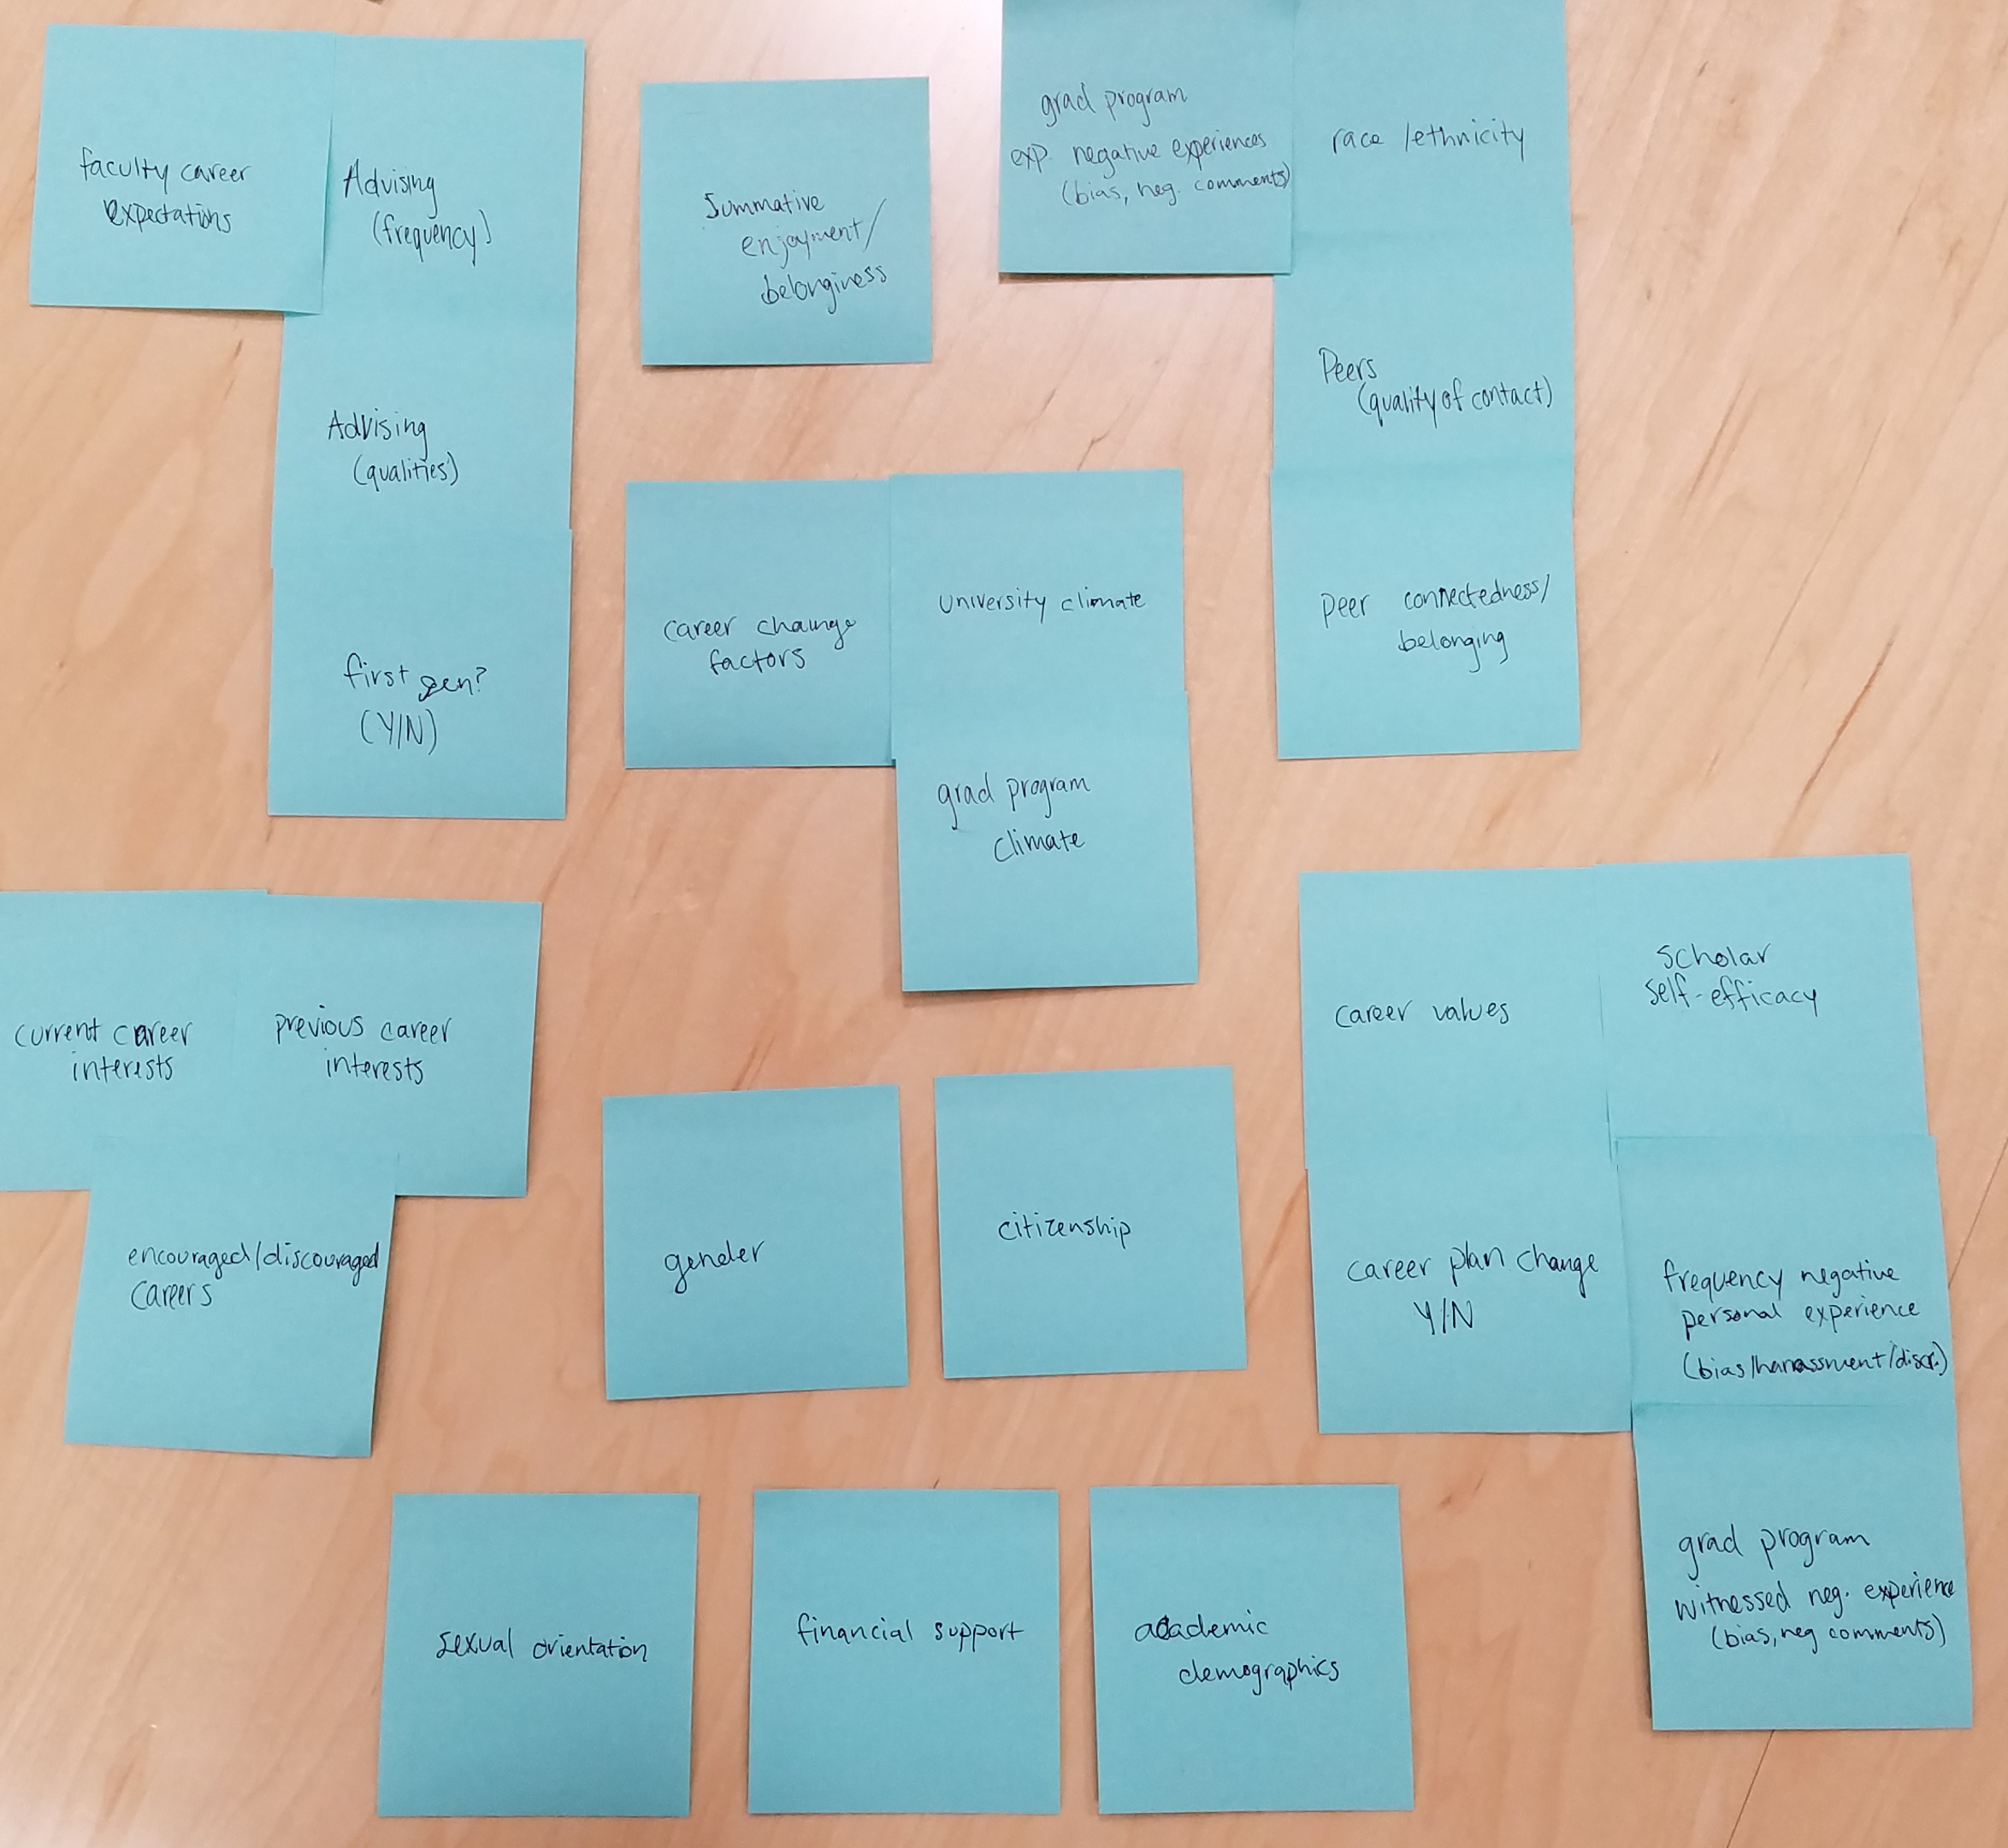 faculty career
expectations
Advising
(frequency)
Advising
(qualities)
first gen?
(Y/N)
Summative
enjoyment/
belonginess
grad program
exp. negative experiences
(bias, neg. comments)
race/ethnicity
Peers
(quality of contact)
peer connectedness/
belonging
career change
factors
university climate
grad program
climate
current career
interests
previous career
interests
encouraged/discouraged
careers
gender
citizenship
career values
scholar
self-efficacy
career plan change
Y/N
frequency negative
personal experience
(bias/harassment/discr.)
grad program
witnessed neg. experience
(bias, neg comments)
sexual orientation
financial support
academic
demographics